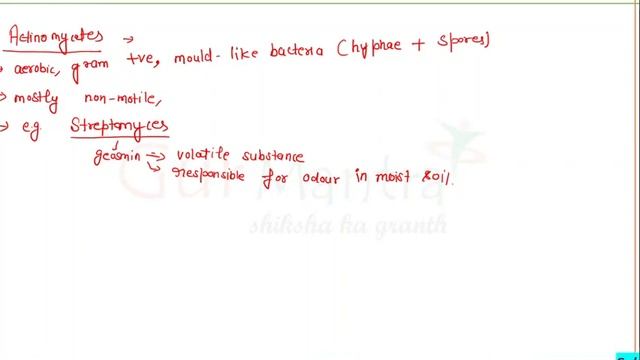 Actinomycetes →
→ aerobic, gram +ve, mould-like bacteria (hyphae + spores)
→ mostly non-motile,
→ e.g. Streptomyces
geosmin → volatile substance
→ responsible for odour in moist soil.
Gurmantra
shiksha ka granth